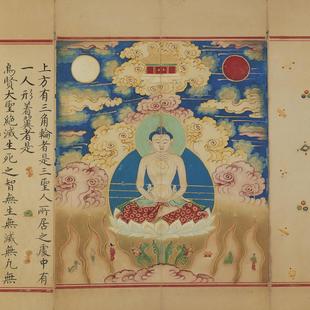 上方有三角輪者是三聖人所居之處中有
一人形着者是
賢大聖絕滅生死之智無生無滅無凡無